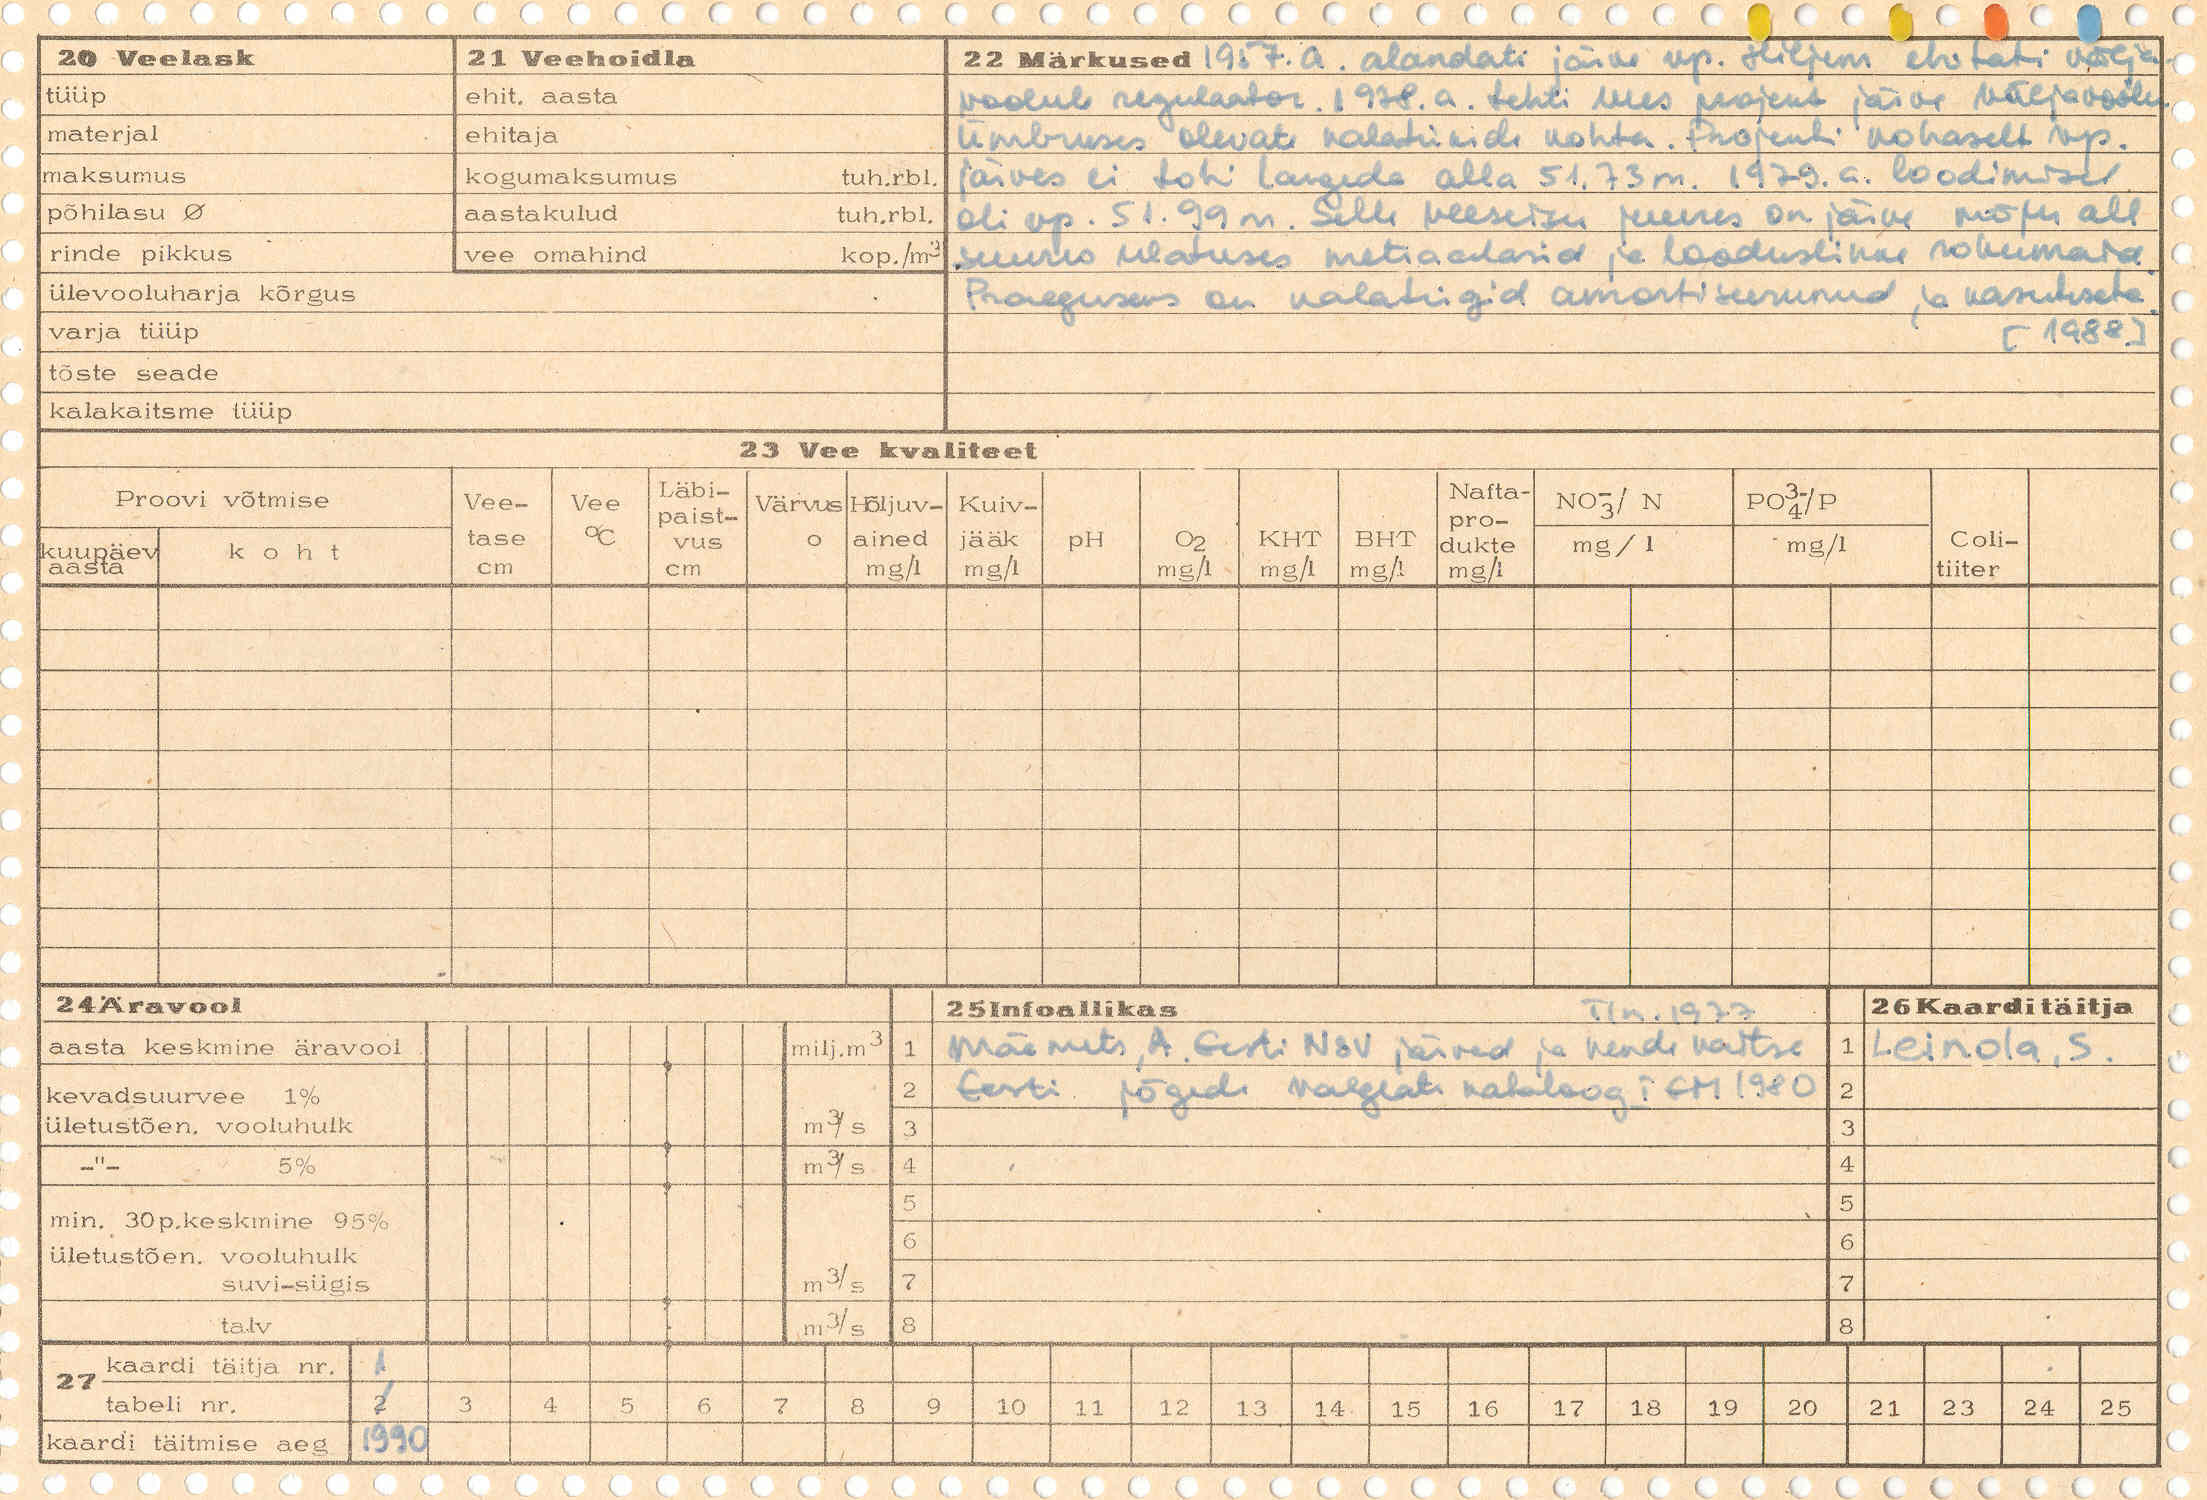 20 Veelask
tüüp
materjal
maksumus
põhilasu Ø
rinde pikkus
ülevooluharja kõrgus
varja tüüp
tõste seade
kalakaitsme tüüp
21 Veehoidla
ehit. aasta
ehitaja
kogumaksumus tuh.rbl.
aastakulud tuh.rbl.
vee omahind kop./m³
22 Märkused 1957.a. alandati järve vp. Hiljem ehitati välja-
voolule regulaator. 1978.a. tehti uus projekt järve väljavoolu
ümbruses olevate kalatiikide kohta. Projekti kohaselt vp.
järves ei tohi langeda alla 51.73 m. 1979.a. loodimisel
oli vp. 51.99 m. Selle veeseisu juures on järve mõju all
suures ulatuses metsaalasid ja looduslikke rohumaid.
Praeguseks on kalatiigid amortiseerunud ja kasutuseta.
[1988]
23 Vee kvaliteet
Proovi võtmise
kuupäev aasta
koht
Vee-tase cm
Vee °C
Läbi-paist-vus cm
Värvus o
Hõljuv-ained mg/l
Kuiv-jääk mg/l
pH
O2 mg/l
KHT mg/l
BHT mg/l
Nafta-pro-dukte mg/l
NO3⁻/ N mg/l
PO4³⁻/P mg/l
Coli-tiiter
24 Äravool
aasta keskmine äravool milj.m³
kevadsuurvee 1%
ületustõen. vooluhulk m³/s
-"- 5% m³/s
min. 30p.keskmine 95%
ületustõen. vooluhulk
suvi-sügis m³/s
talv m³/s
25 Infoallikas Tln. 1977
1 Mäemets, A. Eesti NSV järved ja nende kaitse
2 Eesti jõgede kataloog I EM 1980
3
4
5
6
7
8
26 Kaardi täitja
1 Leinola, S.
2
3
4
5
6
7
8
27 kaardi täitja nr. 1
tabeli nr. 2 3 4 5 6 7 8 9 10 11 12 13 14 15 16 17 18 19 20 21 23 24 25
kaardi täitmise aeg 1990